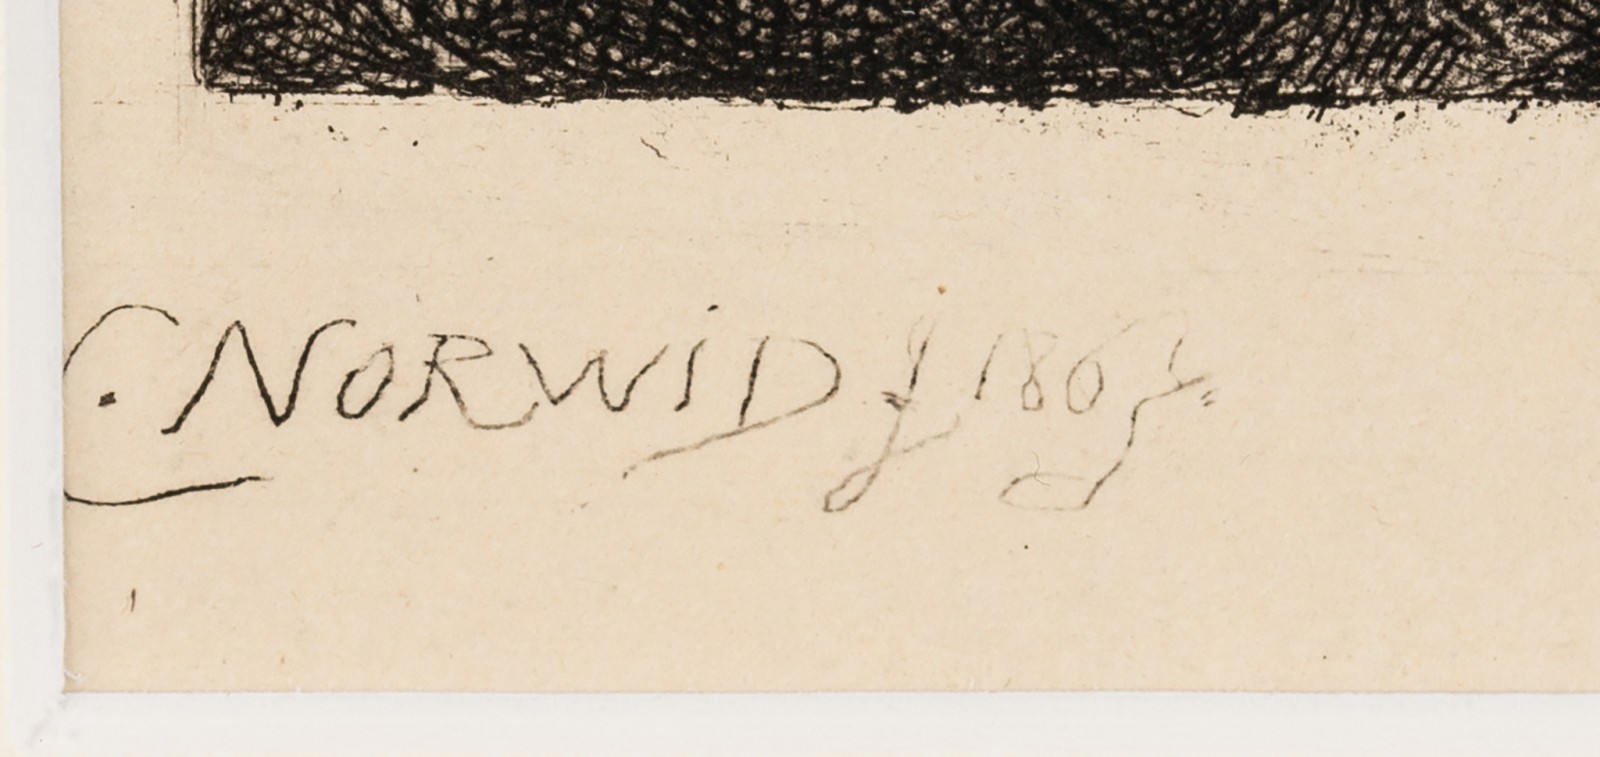 C. NORWID f 186